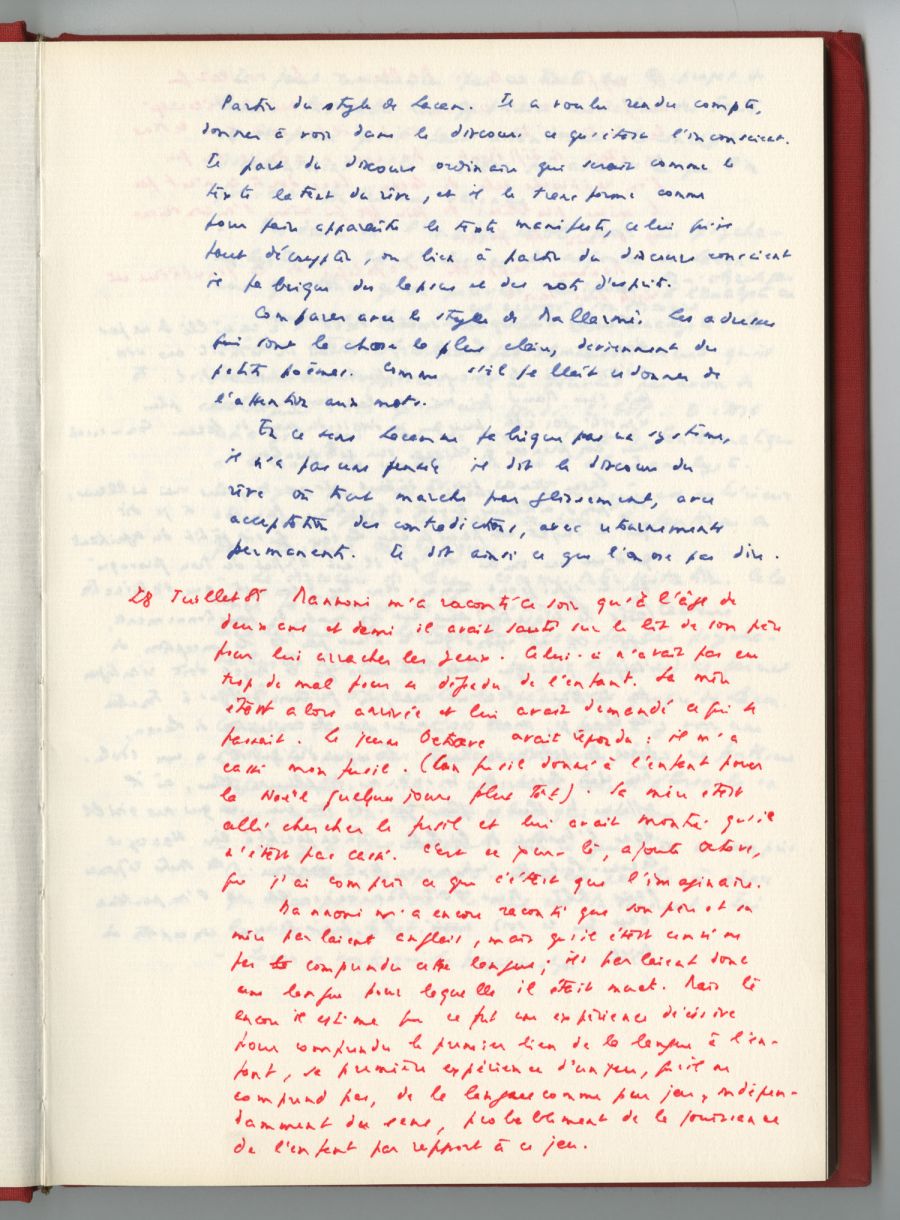 Partir du style de Lacan. Il a voulu rendre compte,
donner à voir dans le discours ce qu'était l'inconscient.
Il part du discours ordinaire qui serait comme le
texte latent du rêve, et il le transforme comme
pour faire apparaître le texte manifeste, celui qu'il
faut décrypter, ou bien à partir du discours conscient
il fabrique des lapsus et des mots d'esprit.
Comparer avec le style de Mallarmé. Les adresses
qui sont la chose la plus claire, deviennent des
petits poèmes. Comme s'il fallait redonner de
l'attention aux mots.
En ce sens Lacan ne fabrique pas un système,
il n'a pas une pensée il dit le discours du
rêve où tout marche par glissement, avec
acceptation des contradictions, avec retournements
permanents. Il dit ainsi ce que l'on ose pas dire.
28 Juillet 85 Mannoni m'a raconté ce soir qu'à l'âge de
deux ans et demi il avait sauté sur le lit de son père
pour lui arracher les yeux. Celui-ci n'avait pas eu
trop de mal pour se défendre de l'enfant. Sa mère
était alors arrivée et lui avait demandé ce qui se
passait. Le jeune Octave avait répondu : il m'a
cassé mon fusil. (Un fusil donné à l'enfant pour
la Noël quelques jours plus tôt). Sa mère était
allé chercher le fusil et lui avait montré qu'il
n'était pas cassé. C'est ce jour là, ajoute Octave,
que j'ai compris ce que c'était que l'imaginaire.
Mannoni m'a encore raconté que son père et sa
mère parlaient anglais, mais qu'il était censé ne
pas comprendre cette langue ; ils parlaient donc
une langue pour laquelle il était muet. Mais là
encore il estime que ce fut une expérience décisive
pour comprendre le premier lien de la langue à l'en-
fant, sa première expérience d'un jeu, qu'il ne
comprend pas, de la langue comme pur jeu, indépen-
damment du sens, probablement de la jouissance
de l'enfant par rapport à ce jeu.